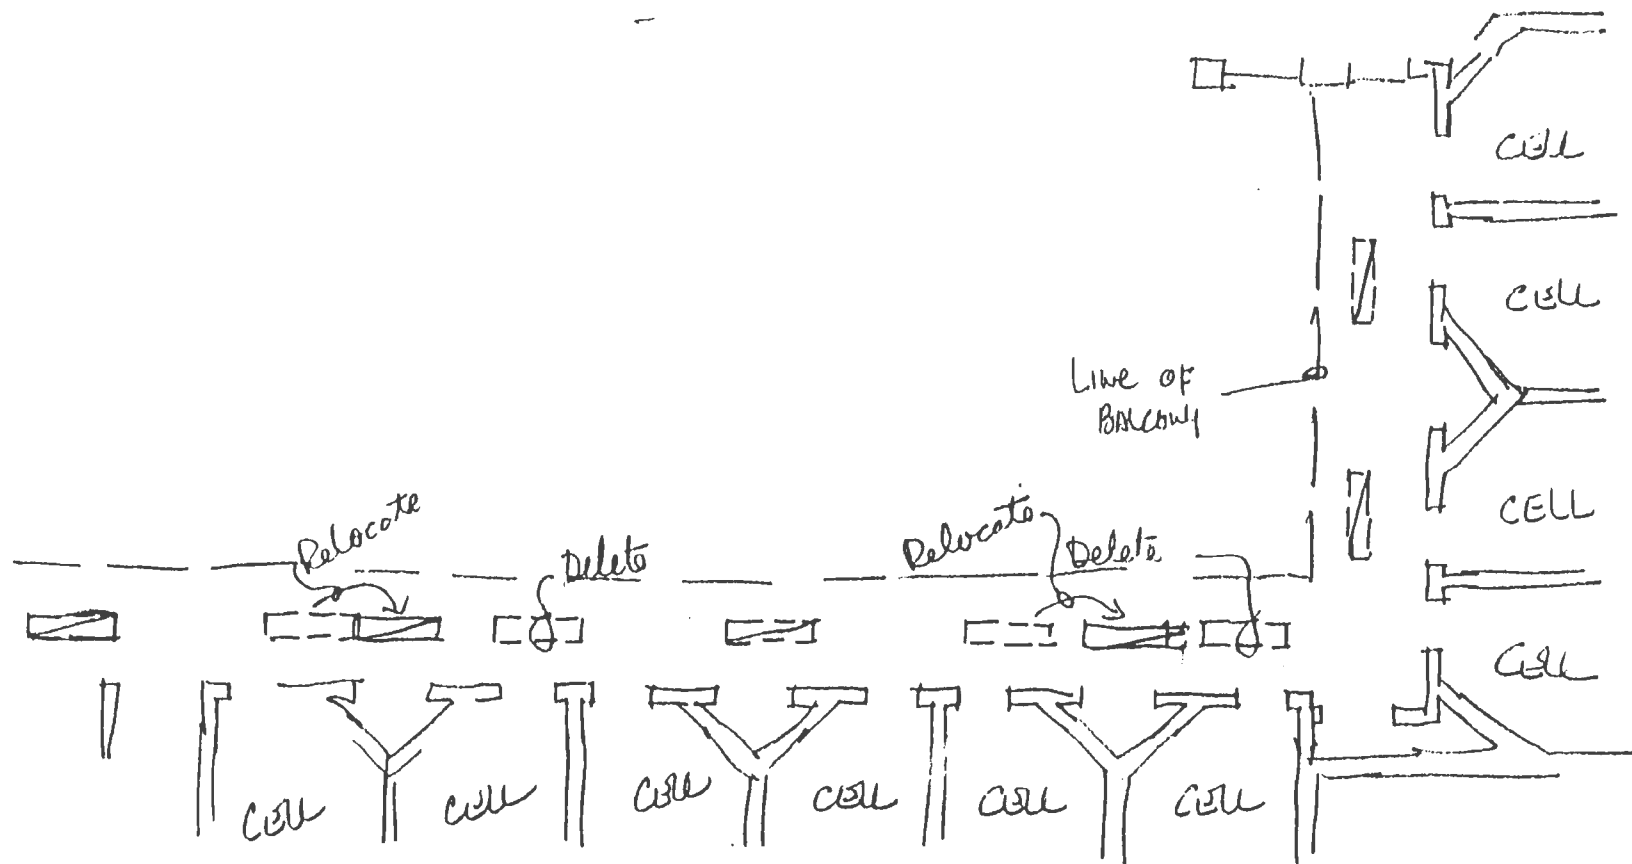 CELL
CELL
LINE OF
BALCONY
CELL
Relocate
Delete
Relocate
Delete
CELL
CELL
CELL
CELL
CELL
CELL
CELL